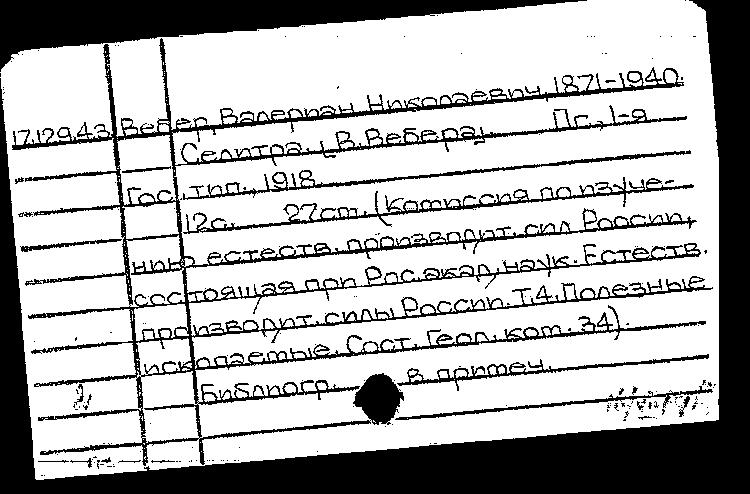 17.129.43 Вебер, Валериан Николаевич, 1871-1940.
Селитра. [В. Вебера]. Пг., 1-я
Гос. тип., 1918.
12с. 27cm. (Комиссия по изуче-
нию естеств. производит. сил России,
состоящая при Рос. акад. наук. Естеств.
производит. силы России. Т. 4. Полезные
ископаемые. Сост. Геол. ком. 34).
Библиогр. в примеч.